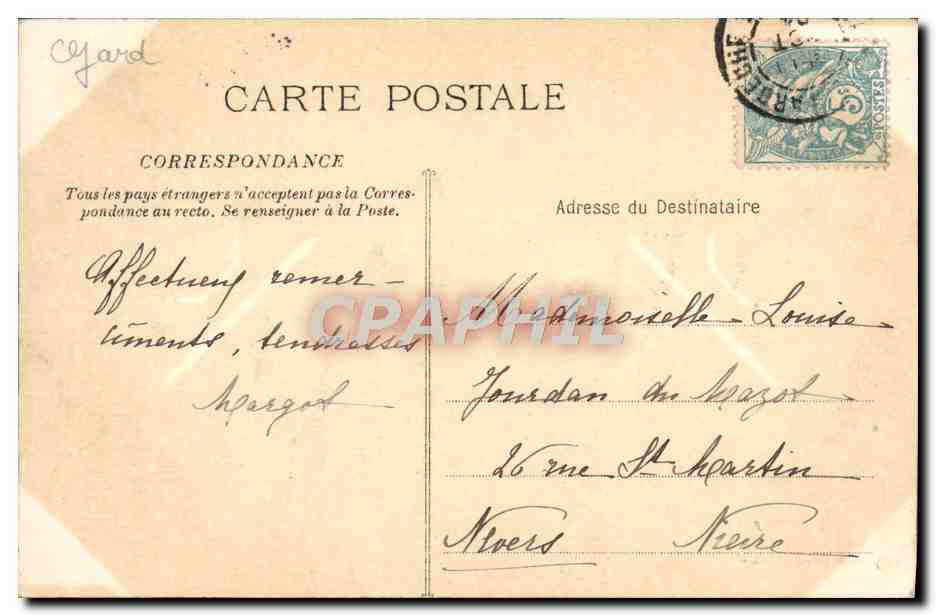 Gard
CARTE POSTALE
ARDECHE
5
POSTES
CORRESPONDANCE
Tous les pays étrangers n'acceptent pas la Corres-
pondance au recto. Se renseigner à la Poste.
Adresse du Destinataire
Affectueux remer-
ciments, tendresses
Margot
CPAPHIL
Mademoiselle Louise
Jourdan du Mazot
26 rue St Martin
Nevers Nièvre